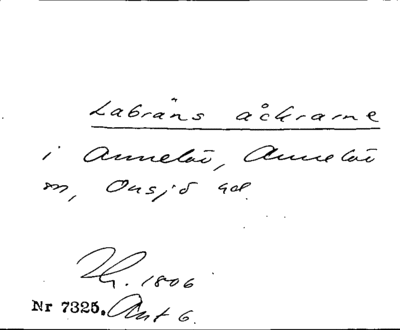 Labräns åckrarne
i Annelöv, Annelöv
sn, Onsjö hd.
Th. 1806
Nr 7325. Akt 6.